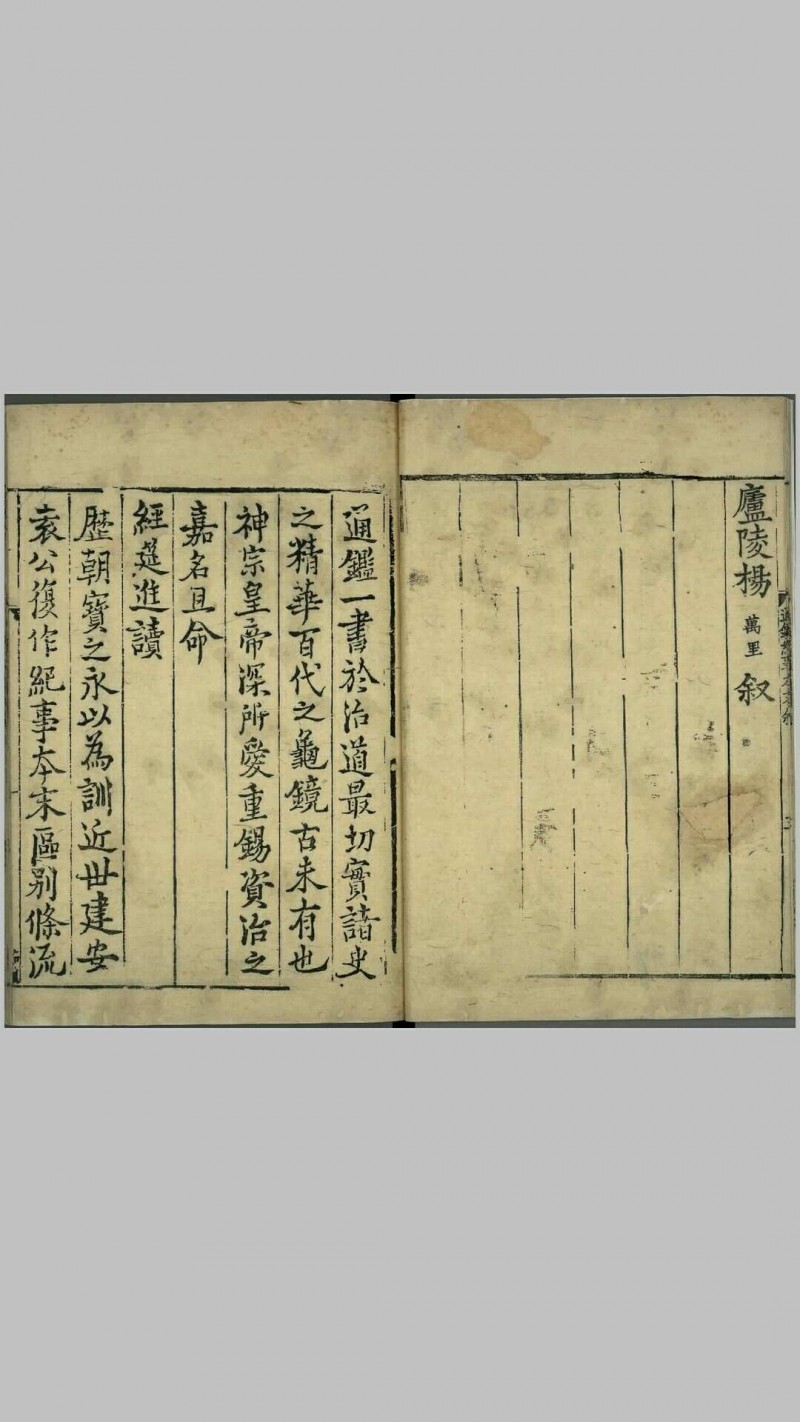 廬陵楊萬里叙
通鑑一書於治道最切實諸史
之精華百代之龜鏡古未有也
神宗皇帝深所愛重錫資治之
嘉名且命
經筵進讀
歷朝寶之永以為訓近世建安
袁公復作紀事本末區别條流